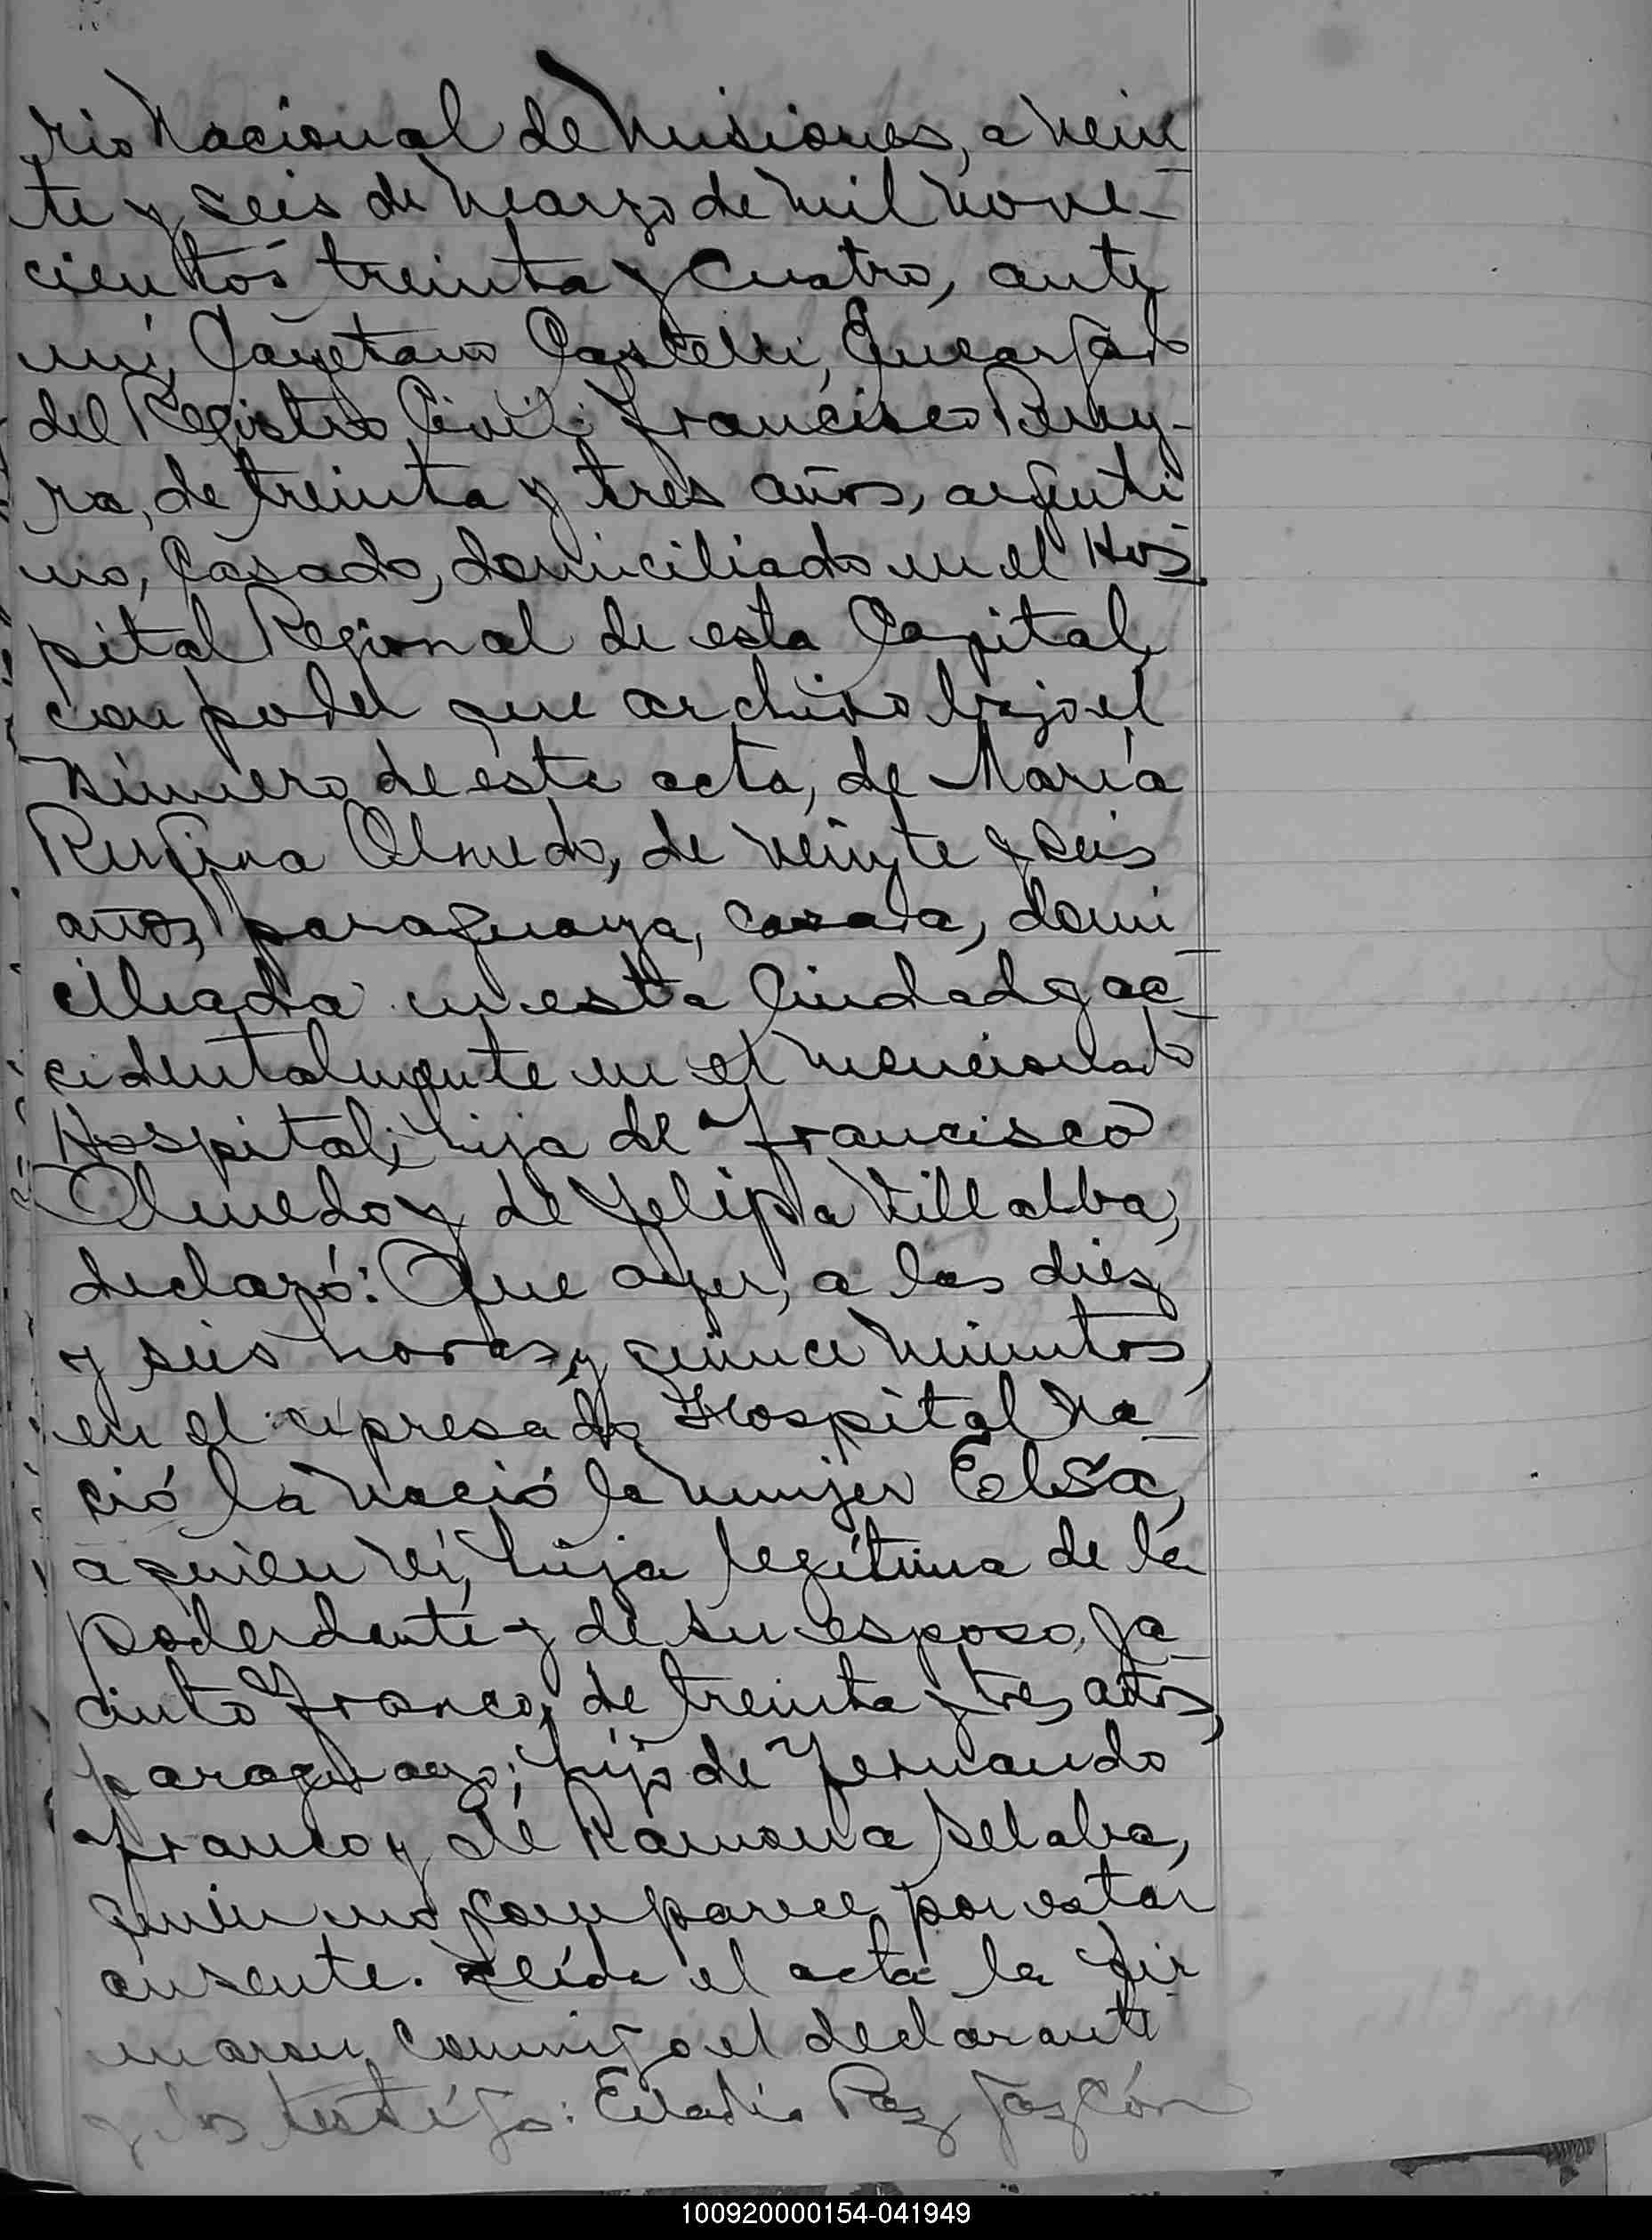 rio Nacional de Misiones, a vein
te y seis de Marzo de mil nove-
cientos treinta y cuatro, ante
mí, Cayetano Castelli, Encargado
del Registro Civil: Francisco Perey-
ra, de treinta y tres años, argenti
no, casado, domiciliado en el Hos
pital Regional de esta Capital,
con poder que archivo bajo el
número de este acta, de María
Rufina Olmedo, de veinte y seis
años, paraguaya, casada, domi
ciliada en esta Ciudad y ac
cidentalmente en el mencionado
Hospital; hija de Francisco
Olmedo y de Felipa Villalba,
declaró: Que ayer, a las diez
y seis horas y quince minutos,
en el expresado Hospital na
ció la nació la mujer Elsa,
a quien ví, hija legítima de la
poderdante y de su esposo, Ja
cinto Franco, de treinta y tres años,
paraguayo; hijo de Fernando
Franco y de Ramona
quien no comparece por estar
ausente. Leída el acta la fir
maron conmigo el declarante
y los testigos: Eladio Paz
100920000154-041949